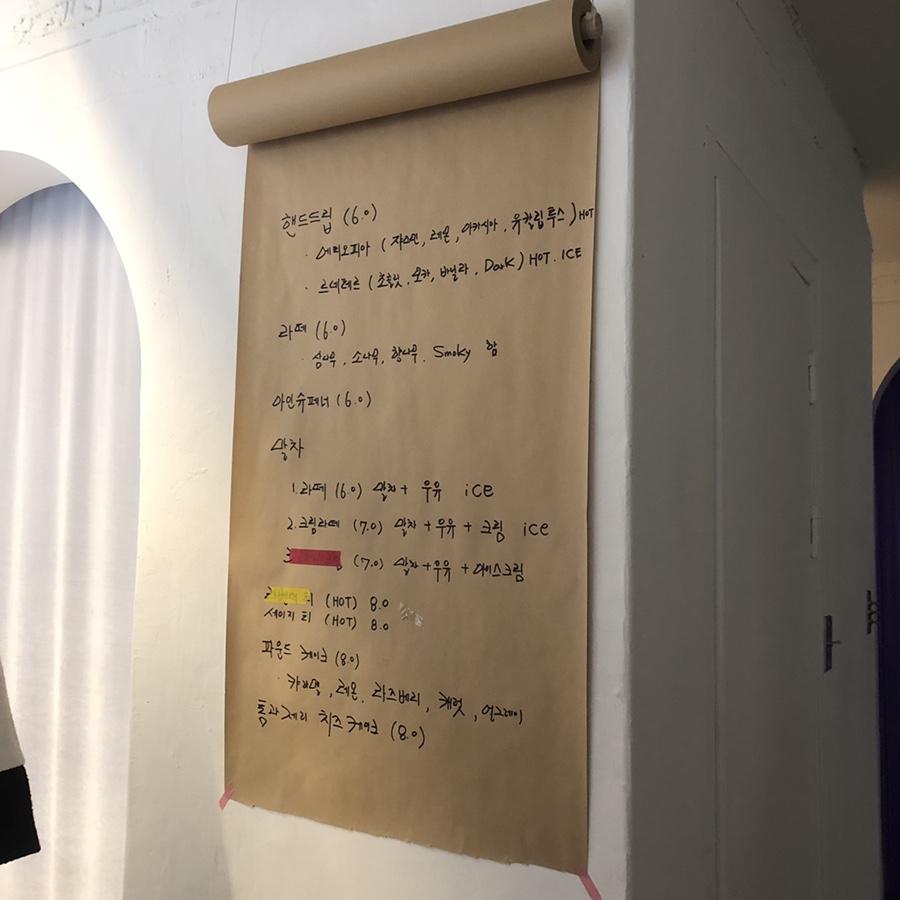 핸드드립 (6.0)
· 에티오피아 (자스민, 레몬, 아카시아, 유칼립투스) HOT
· 르네테르 (초콜릿, 모카, 바닐라, Dark) HOT. ICE
라떼 (6.0)
· 삼나무, 소나무, 향나무. Smoky 함
아인슈페너 (6.0)
말차
1. 라떼 (6.0) 말차 + 우유 iCE
2. 크림라떼 (7.0) 말차 + 우유 + 크림 ice
3. (7.0) 말차 + 우유 + 아이스크림
티 (HOT) 8.0
세이지 티 (HOT) 8.0
파운드 케이크 (8.0)
· 캬라멜, 레몬, 라즈베리, 캐럿, 얼그레이
통과제리 치즈케이크 (8.0)